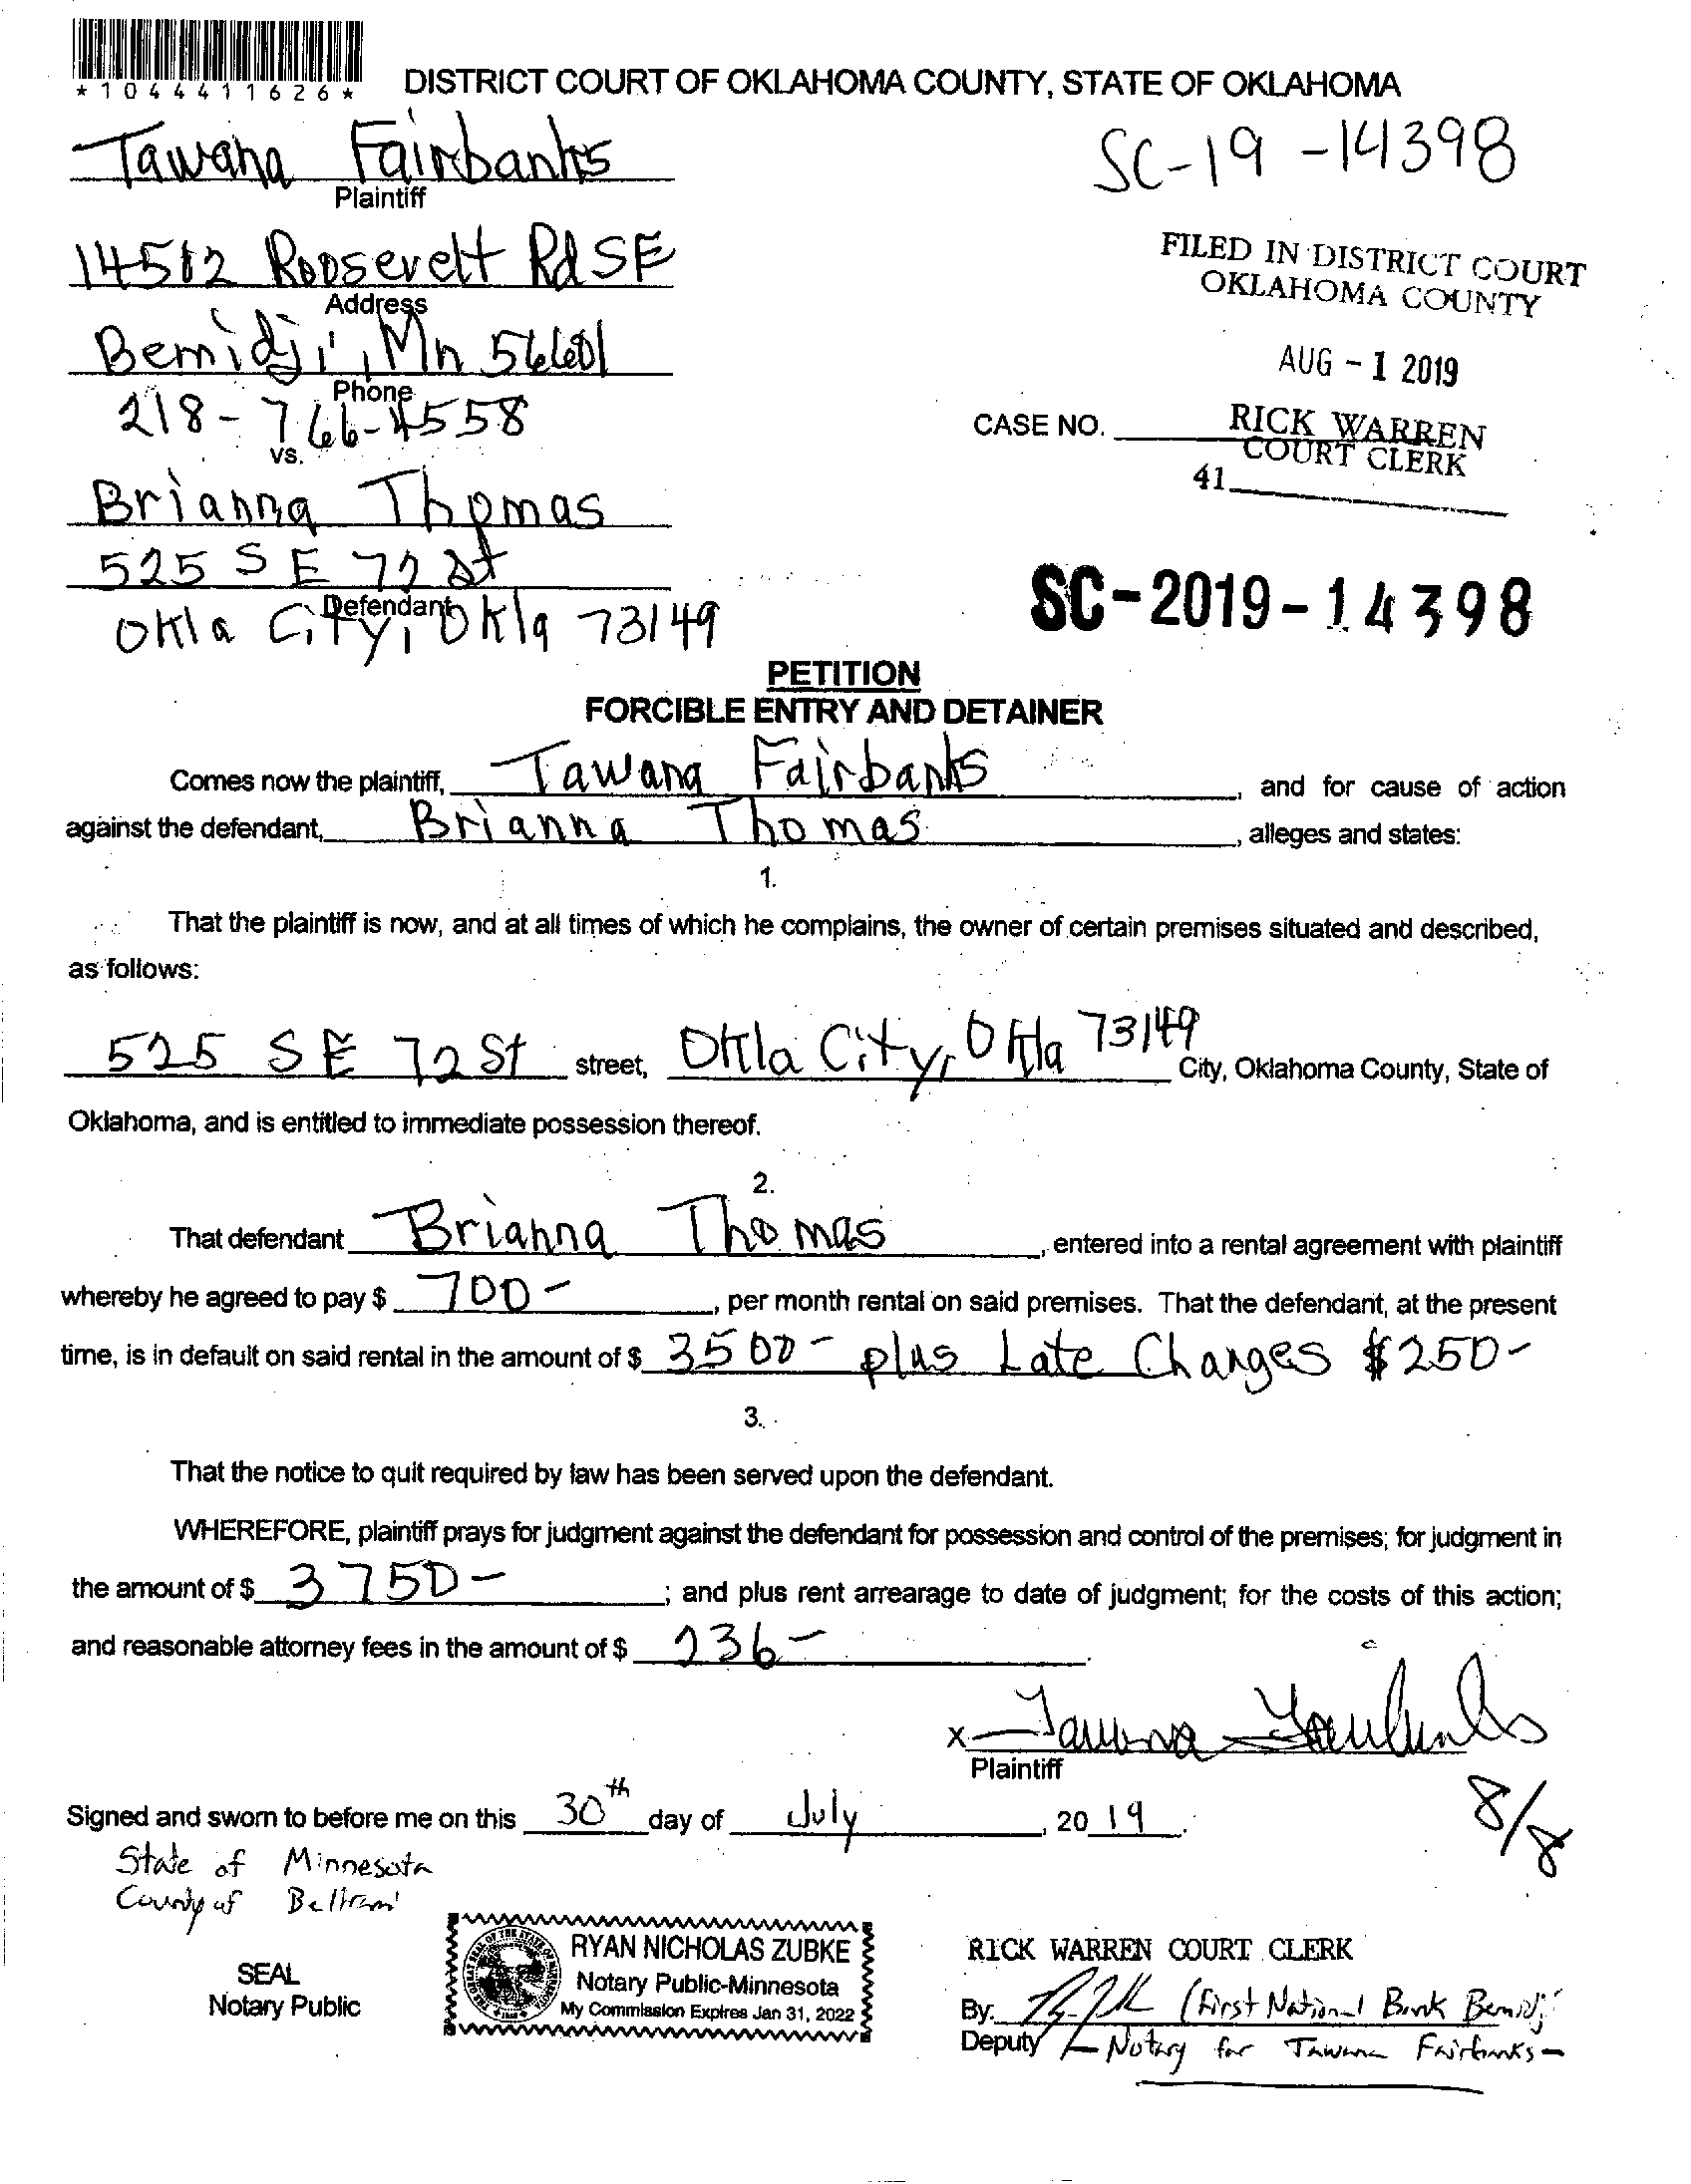 *1044411626*
DISTRICT COURT OF OKLAHOMA COUNTY, STATE OF OKLAHOMA
Tawana Fairbanks
Plaintiff
SC-19-14398
14512 Roosevelt Rd SE
Address
FILED IN DISTRICT COURT
OKLAHOMA COUNTY
Bemidji, Mn 56601
Phone
AUG - 1 2019
218-766-4558
vs.
CASE NO.
RICK WARREN
COURT CLERK
41
Brianna Thomas
525 SE 72 St
Defendant
Okla City, Okla 73149
SC-2019-14398
PETITION
FORCIBLE ENTRY AND DETAINER
Comes now the plaintiff, Tawana Fairbanks, and for cause of action
against the defendant, Brianna Thomas, alleges and states:
1.
That the plaintiff is now, and at all times of which he complains, the owner of certain premises situated and described,
as follows:
525 SE 72 St street, Okla City, Okla 73149 City, Oklahoma County, State of
Oklahoma, and is entitled to immediate possession thereof.
2.
That defendant Brianna Thomas, entered into a rental agreement with plaintiff
whereby he agreed to pay $ 700-, per month rental on said premises. That the defendant, at the present
time, is in default on said rental in the amount of $ 3500- plus Late Charges $250-
3.
That the notice to quit required by law has been served upon the defendant.
WHEREFORE, plaintiff prays for judgment against the defendant for possession and control of the premises; for judgment in
the amount of $ 3750-; and plus rent arrearage to date of judgment; for the costs of this action;
and reasonable attorney fees in the amount of $ 236-.
x Tawana Fairbanks
Plaintiff
8/8
Signed and sworn to before me on this 30th day of July, 2019.
State of Minnesota
County of Beltrami
SEAL
Notary Public
RYAN NICHOLAS ZUBKE
Notary Public-Minnesota
My Commission Expires Jan 31, 2022
RICK WARREN COURT CLERK
By: (First National Bank Bemidji
Deputy Notary for Tawana Fairbanks-